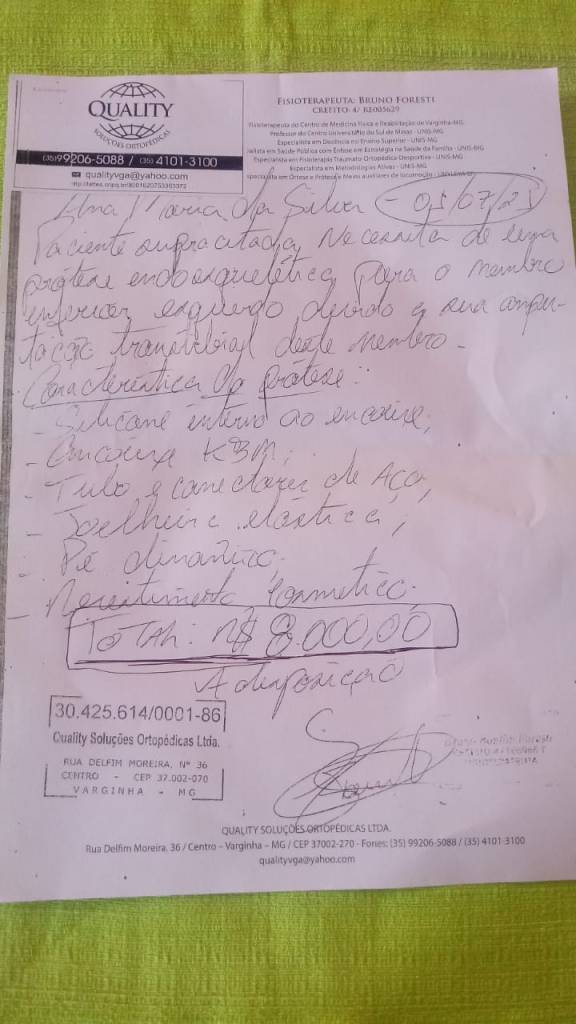 QUALITY
SOLUÇÕES ORTOPÉDICAS
(35)99206-5088 / (35) 4101-3100
qualityvga@yahoo.com
FISIOTERAPEUTA: BRUNO FORESTI
CREFITO- 4/ RE005629
Fisioterapeuta do Centro de Medicina Física e Reabilitação de Varginha-MG
Professor do Centro Universitário do Sul de Minas - UNIS-MG
Especialista em Docência no Ensino Superior - UNIS-MG
alista em Saúde Pública com Ênfase em Estratégia na Saúde da Família - UNIS-MG
Especialista em Fisioterapia Traumato Ortopédica Desportiva - UNIS-MG
Especialista em Metodologias Ativas - UNIS-MG
specialista em Órtese e Prótese e Meios Auxiliares de locomoção
Maria da Silva - 05/07/21
Paciente supracitada, necessita de uma
prótese endoesquelética para o membro
inferior esquerdo devido a sua ampu-
tação transtibial deste membro-
Característica da prótese:
- Silicone interno ao encaixe;
- Encaixe KBM;
- Tubo e conectores de Aço;
- Joelheira elástica;
- Pé dinâmico;
- Revestimento Cosmético.
TOTAL: R$ 8.000,00
A disposição
30.425.614/0001-86
Quality Soluções Ortopédicas Ltda.
RUA DELFIM MOREIRA, Nº 36
CENTRO - CEP 37.002-070
VARGINHA - MG
QUALITY SOLUÇÕES ORTOPÉDICAS LTDA.
Rua Delfim Moreira, 36 / Centro – Varginha – MG / CEP 37002-270 - Fones: (35) 99206-5088 / (35) 4101-3100
qualityvga@yahoo.com